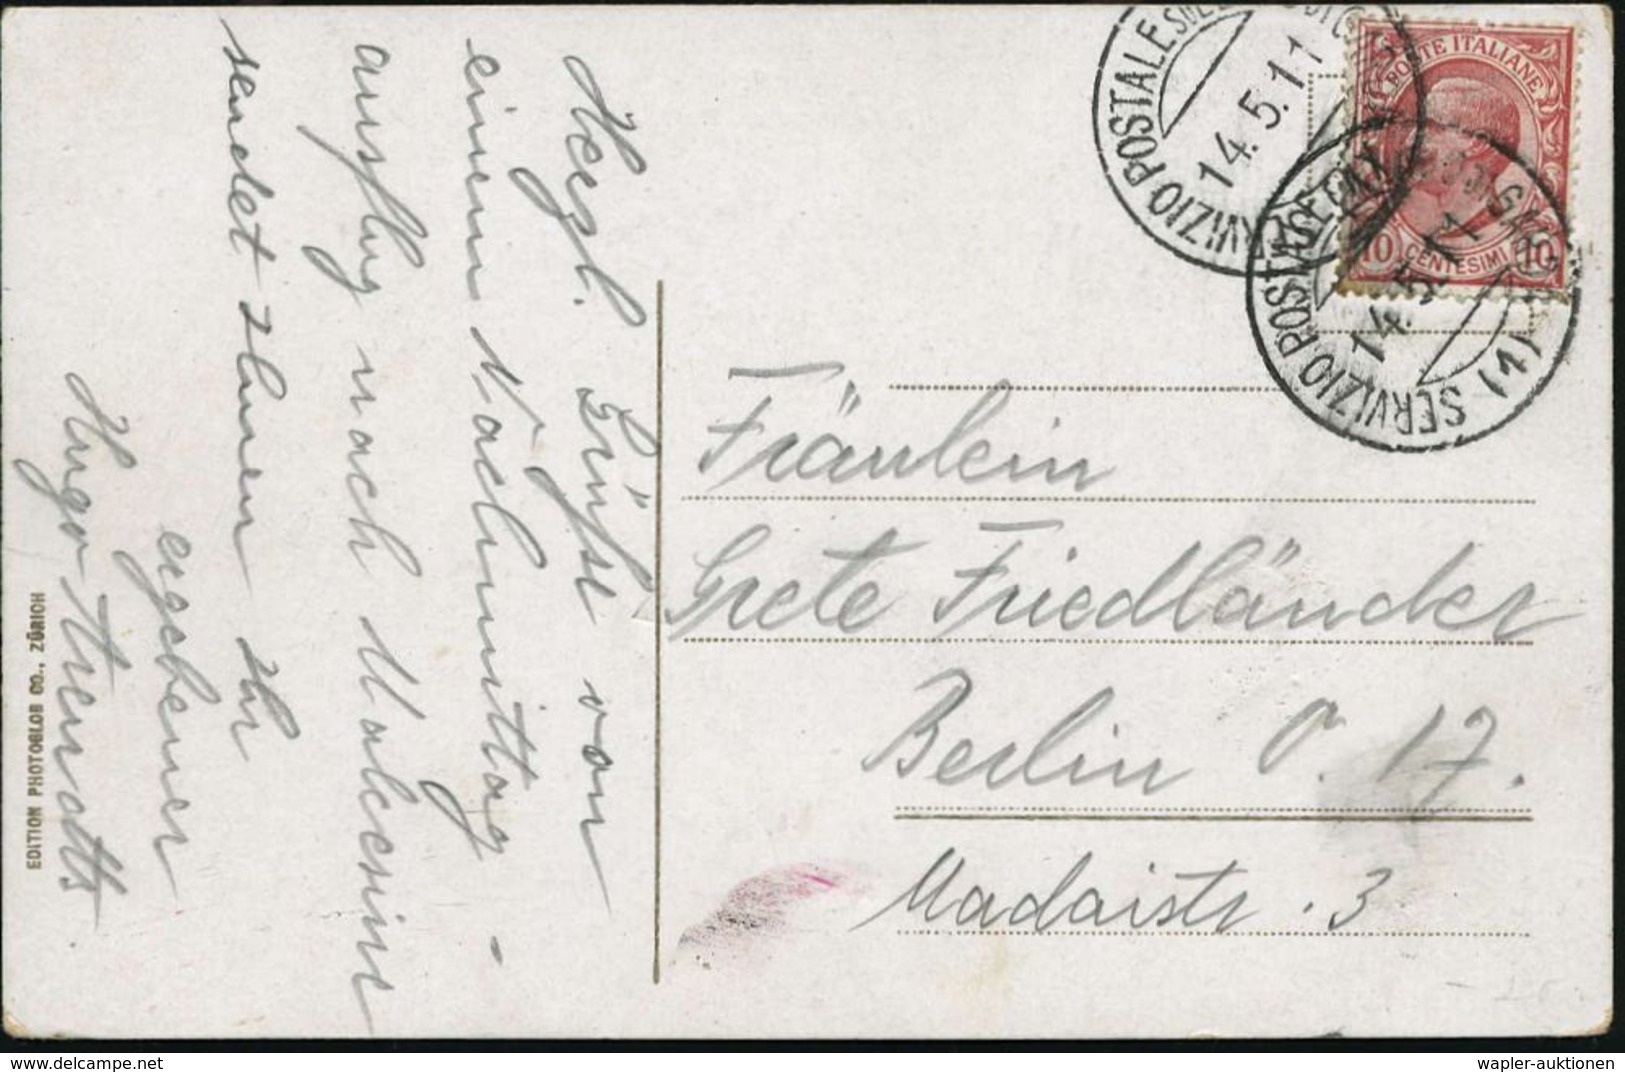 Herzl. Grüße von
einem Nachmittag-
ausflug nach Malcesine
sendet Ihnen Ihr
ergebener
Hugo
EDITION PHOTOGLOB CO., ZÜRICH
POSTE ITALIANE
10 CENTESIMI 10
SERVIZIO POSTALE SUL
14.5.11
SERVIZIO POSTALE SUL
14.5.11
(1)
Fräulein
Grete Friedländer
Berlin O. 17.
Madaistr. 3
wapler-auktionen